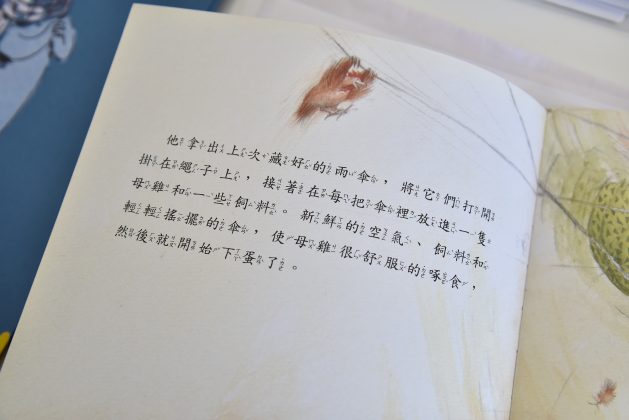 他拿出上次藏好的雨傘，將它們打開
掛在繩子上，接著在每把傘裡放進一隻
母雞和一些飼料。新鮮的空氣、飼料和
輕輕搖擺的傘，使母雞很舒服的啄食，
然後就開始下蛋了。